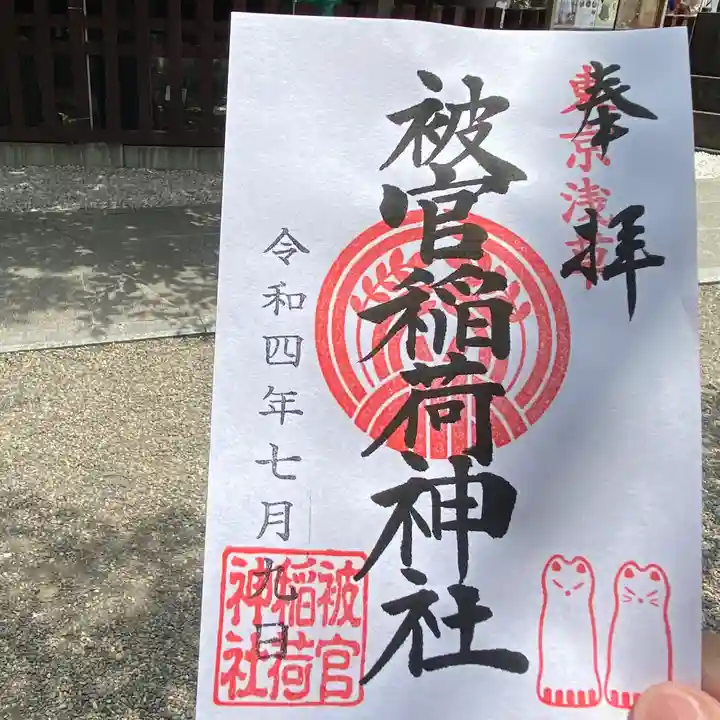 奉拝
東京浅草
被官稲荷神社
令和四年七月九日
被官
稲荷
神社